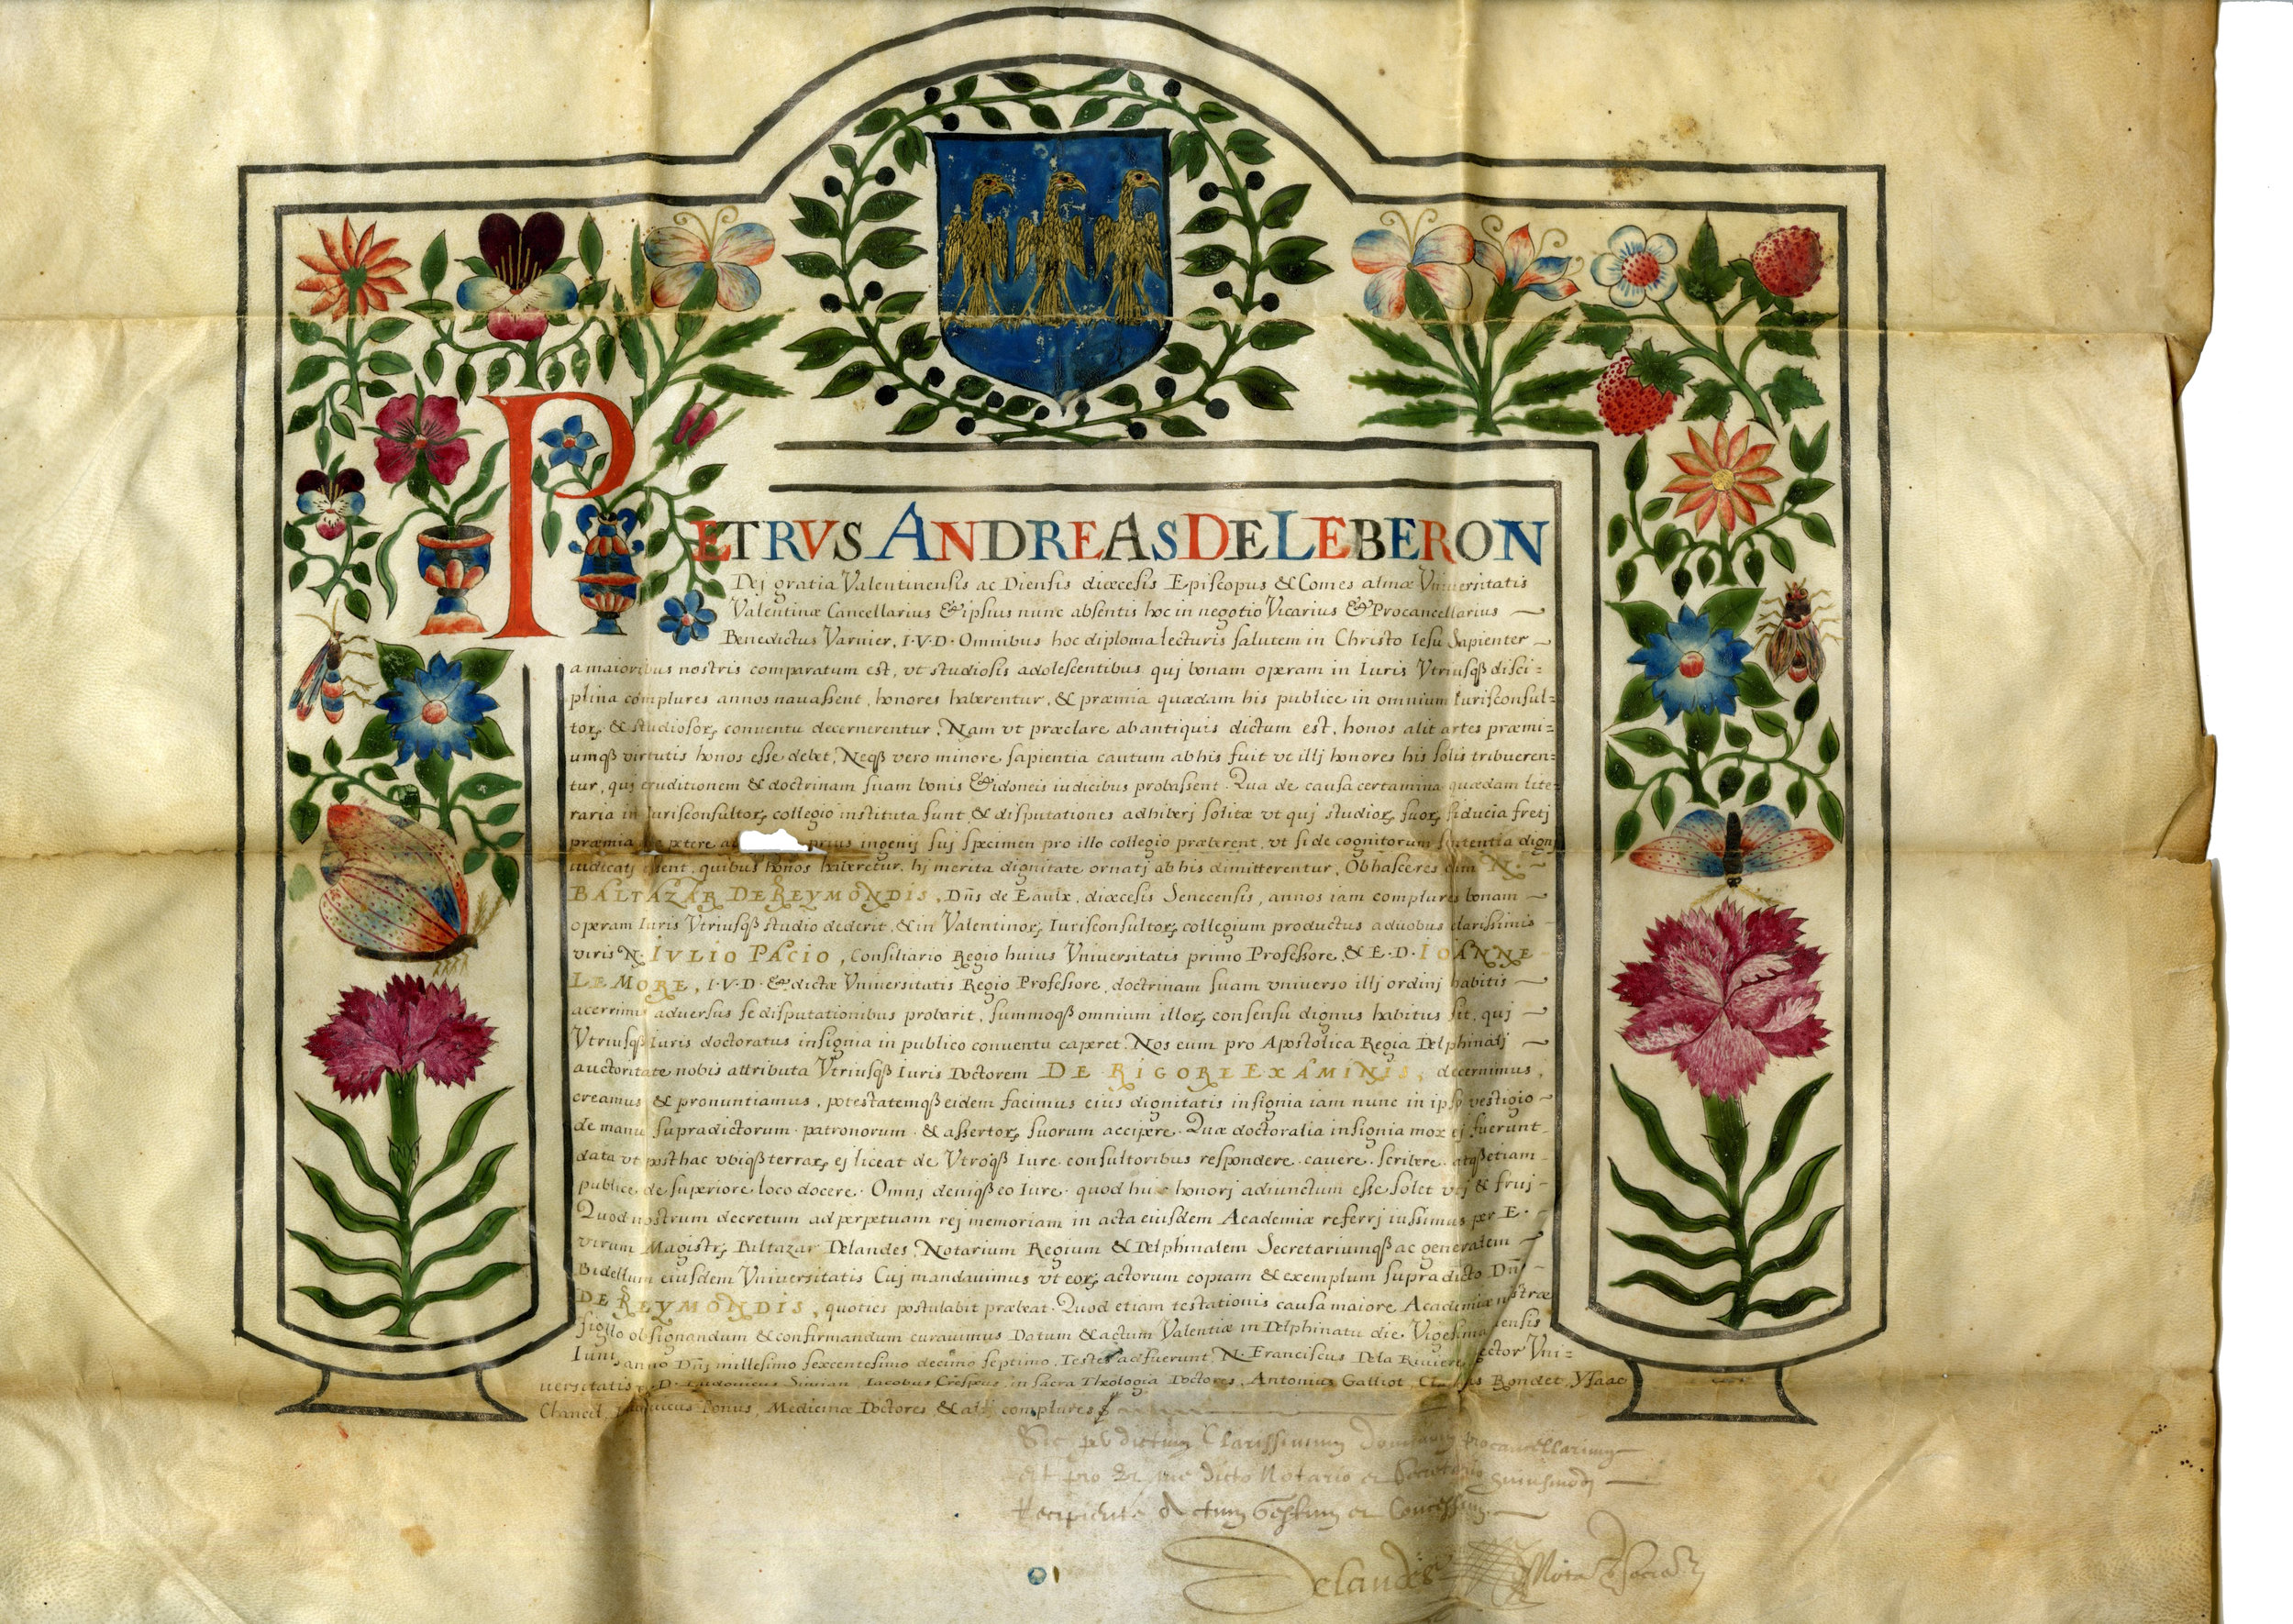 PETRVS ANDREAS DE LEBERON
Dej gratia Valentinensis ac Diensis diœcesis Episcopus & Comes almæ Vniuersitatis
Valentinæ Cancellarius & ipsius nunc absentis hoc in negotio Vicarius & Procancellarius
Benedictus Varnier, I·V·D· Omnibus hoc diploma lecturis salutem in Christo Iesu Sapienter
a maioribus nostris comparatum est, vt studiosis adolescentibus quj bonam operam in Iuris Vtriusqß disci=
plina complures annos nauassent, honores haberentur, & præmia quædam his publice in omnium Iurisconsul=
torꝝ & studiosorꝝ conuentu decernerentur. Nam vt præclare ab antiquis dictum est, honos alit artes præmi=
umqß virtutis honos esse debet, Neqß vero minore sapientia cautum ab his fuit vt illj honores his solis tribueren=
tur, quj eruditionem & doctrinam suam bonis & idoneis iudicibus probassent. Qua de causa certamina quædam lite=
raria in Iurisconsultorꝝ collegio instituta sunt & disputationes adhiberj solitæ vt quj studiorꝝ suorꝝ fiducia fretj
præmia petere prius ingenij suj specimen pro illo collegio præberent, vt si de cognitorum sententia dignj
iudicatj essent, quibus honos haberetur, hj merita dignitate ornatj ab his dimitterentur, Ob hasce res cum N.
BALTAZAR DE REYMONDIS, Dñs de Eaulx, diœcesis Senecensis, annos iam complures bonam
operam Iuris Vtriusqß studio dederit, & in Valentinorꝝ Iurisconsultorꝝ collegium productus a duobus clarissimis
viris N. IVLIO PACIO, Consiliario Regio huius Vniuersitatis primo Professore, & E·D· IOANNE
LE MORE, I·V·D· & dictæ Vniuersitatis Regio Professore, doctrinam suam vniuerso illj ordinj habitis
acerrimis aduersus se disputationibus probarit, summoqß omnium illorꝝ consensu dignus habitus sit, quj
Vtriusqß Iuris doctoratus insignia in publico conuentu caperet. Nos eum pro Apostolica Regia Delphinalj
auctoritate nobis attributa Vtriusqß Iuris Doctorem DE RIGORE EXAMINIS, decernimus,
creamus & pronuntiamus, potestatemqß eidem facimus eius dignitatis insignia iam nunc in ipso vestigio
de manu supradictorum patronorum & assertorꝝ suorum accipere. Quæ doctoralia insignia mox ej fuerunt
data vt posthac vbiqß terrarꝝ ej liceat de Vtroqß Iure consultoribus respondere, cauere, scribere, atqß etiam
publice de superiore loco docere. Omnj deniqß eo Iure quod huic honorj adiunctum esse solet vtj & fruj
Quod nostrum decretum ad perpetuam rej memoriam in acta eiusdem Academiæ referrj iussimus per E.
virum Magistrꝝ Baltazar Delandes, Notarium Regium & Delphinalem Secretariumqß ac generalem
Bidellum eiusdem Vniuersitatis Cuj mandauimus vt eorꝝ actorum copiam & exemplum supradicto Dño
DE REYMONDIS, quoties postulabit præbeat. Quod etiam testationis causa maiore Academiæ nostræ
sigillo obsignandum & confirmandum curauimus Datum & actum Valentiæ in Delphinatu die Vigesima
Iunij anno Dñj millesimo sexcentesimo decimo septimo. Testes adfuerunt N. Franciscus Dela Riuiere Vni=
uersitatis D. Ludouicus Iacobus Crespeus, in sacra Theologia Doctores, Antonius Galliot, Rondet, Ysaac
Chancel, Ponus, Medicinæ Doctores, & alij complures
Sic dictum Clarissimum Dominum procancellarium
et dicto Notario et Secretario
Recipiente Actum Gestum et Concessum
Delandes